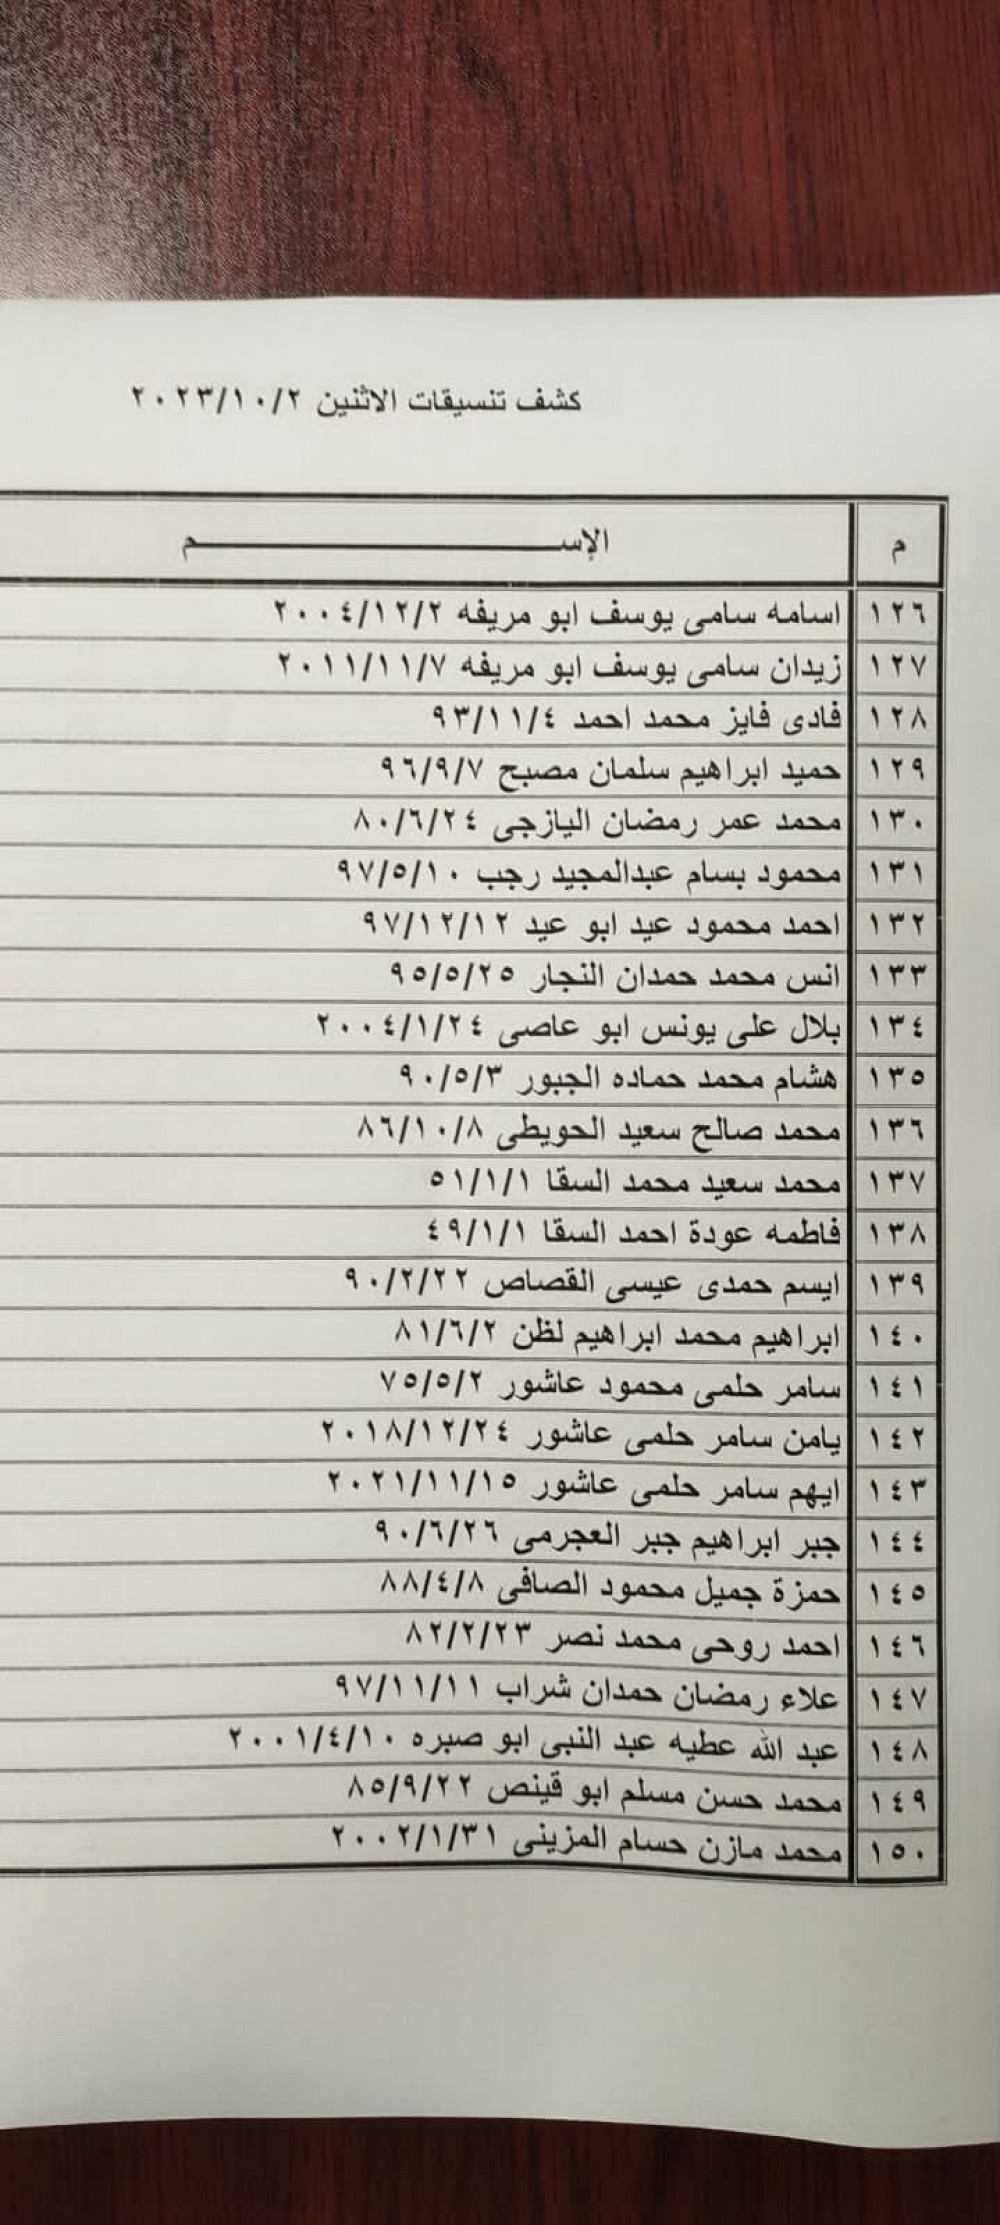 كشف تنسيقات الاثنين ٢٠٢٣/١٠/٢
م الإســـــــــــــــــم
١٢٦ اسامه سامى يوسف ابو مريفه ٢٠٠٤/١٢/٢
١٢٧ زيدان سامى يوسف ابو مريفه ٢٠١١/١١/٧
١٢٨ فادى فايز محمد احمد ٩٣/١١/٤
١٢٩ حميد ابراهيم سلمان مصبح ٩٦/٩/٧
١٣٠ محمد عمر رمضان اليازجى ٨٠/٦/٢٤
١٣١ محمود بسام عبدالمجيد رجب ٩٧/٥/١٠
١٣٢ احمد محمود عيد ابو عيد ٩٧/١٢/١٢
١٣٣ انس محمد حمدان النجار ٩٥/٥/٢٥
١٣٤ بلال على يونس ابو عاصى ٢٠٠٤/١/٢٤
١٣٥ هشام محمد حماده الجبور ٩٠/٥/٣
١٣٦ محمد صالح سعيد الحويطى ٨٦/١٠/٨
١٣٧ محمد سعيد محمد السقا ٥١/١/١
١٣٨ فاطمه عودة احمد السقا ٤٩/١/١
١٣٩ ايسم حمدى عيسى القصاص ٩٠/٢/٢٢
١٤٠ ابراهيم محمد ابراهيم لظن ٨١/٦/٢
١٤١ سامر حلمى محمود عاشور ٧٥/٥/٢
١٤٢ يامن سامر حلمى عاشور ٢٠١٨/١٢/٢٤
١٤٣ ايهم سامر حلمى عاشور ٢٠٢١/١١/١٥
١٤٤ جبر ابراهيم جبر العجرمى ٩٠/٦/٢٦
١٤٥ حمزة جميل محمود الصافى ٨٨/٤/٨
١٤٦ احمد روحى محمد نصر ٨٢/٢/٢٣
١٤٧ علاء رمضان حمدان شراب ٩٧/١١/١١
١٤٨ عبد الله عطيه عبد النبى ابو صبره ٢٠٠١/٤/١٠
١٤٩ محمد حسن مسلم ابو قينص ٨٥/٩/٢٢
١٥٠ محمد مازن حسام المزينى ٢٠٠٢/١/٣١